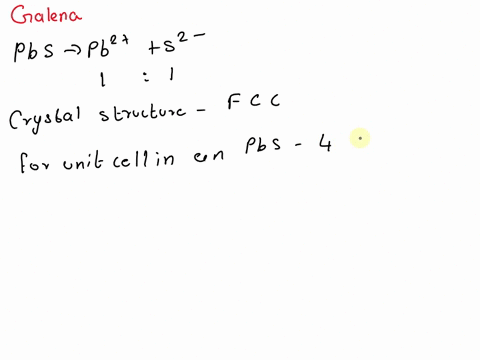 Galena
PbS → Pb²⁺ + S²⁻
1 : 1
Crystal structure - FCC
for unit cell in con PbS - 4